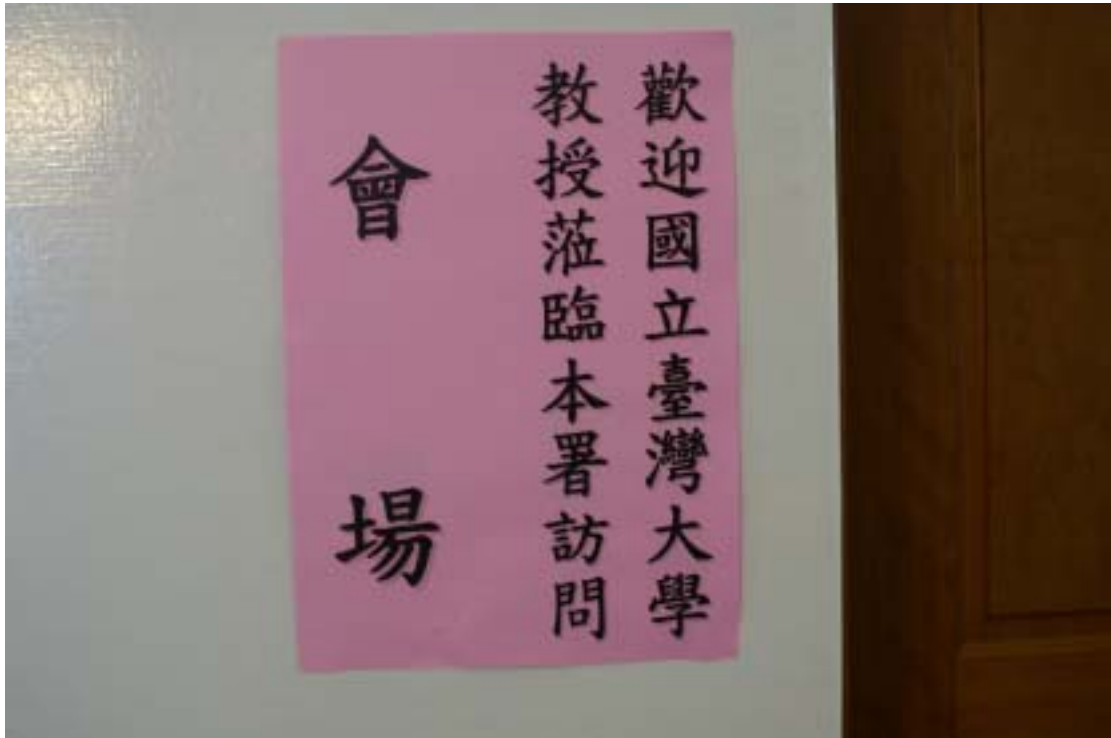 歡迎國立臺灣大學
教授蒞臨本署訪問
會場